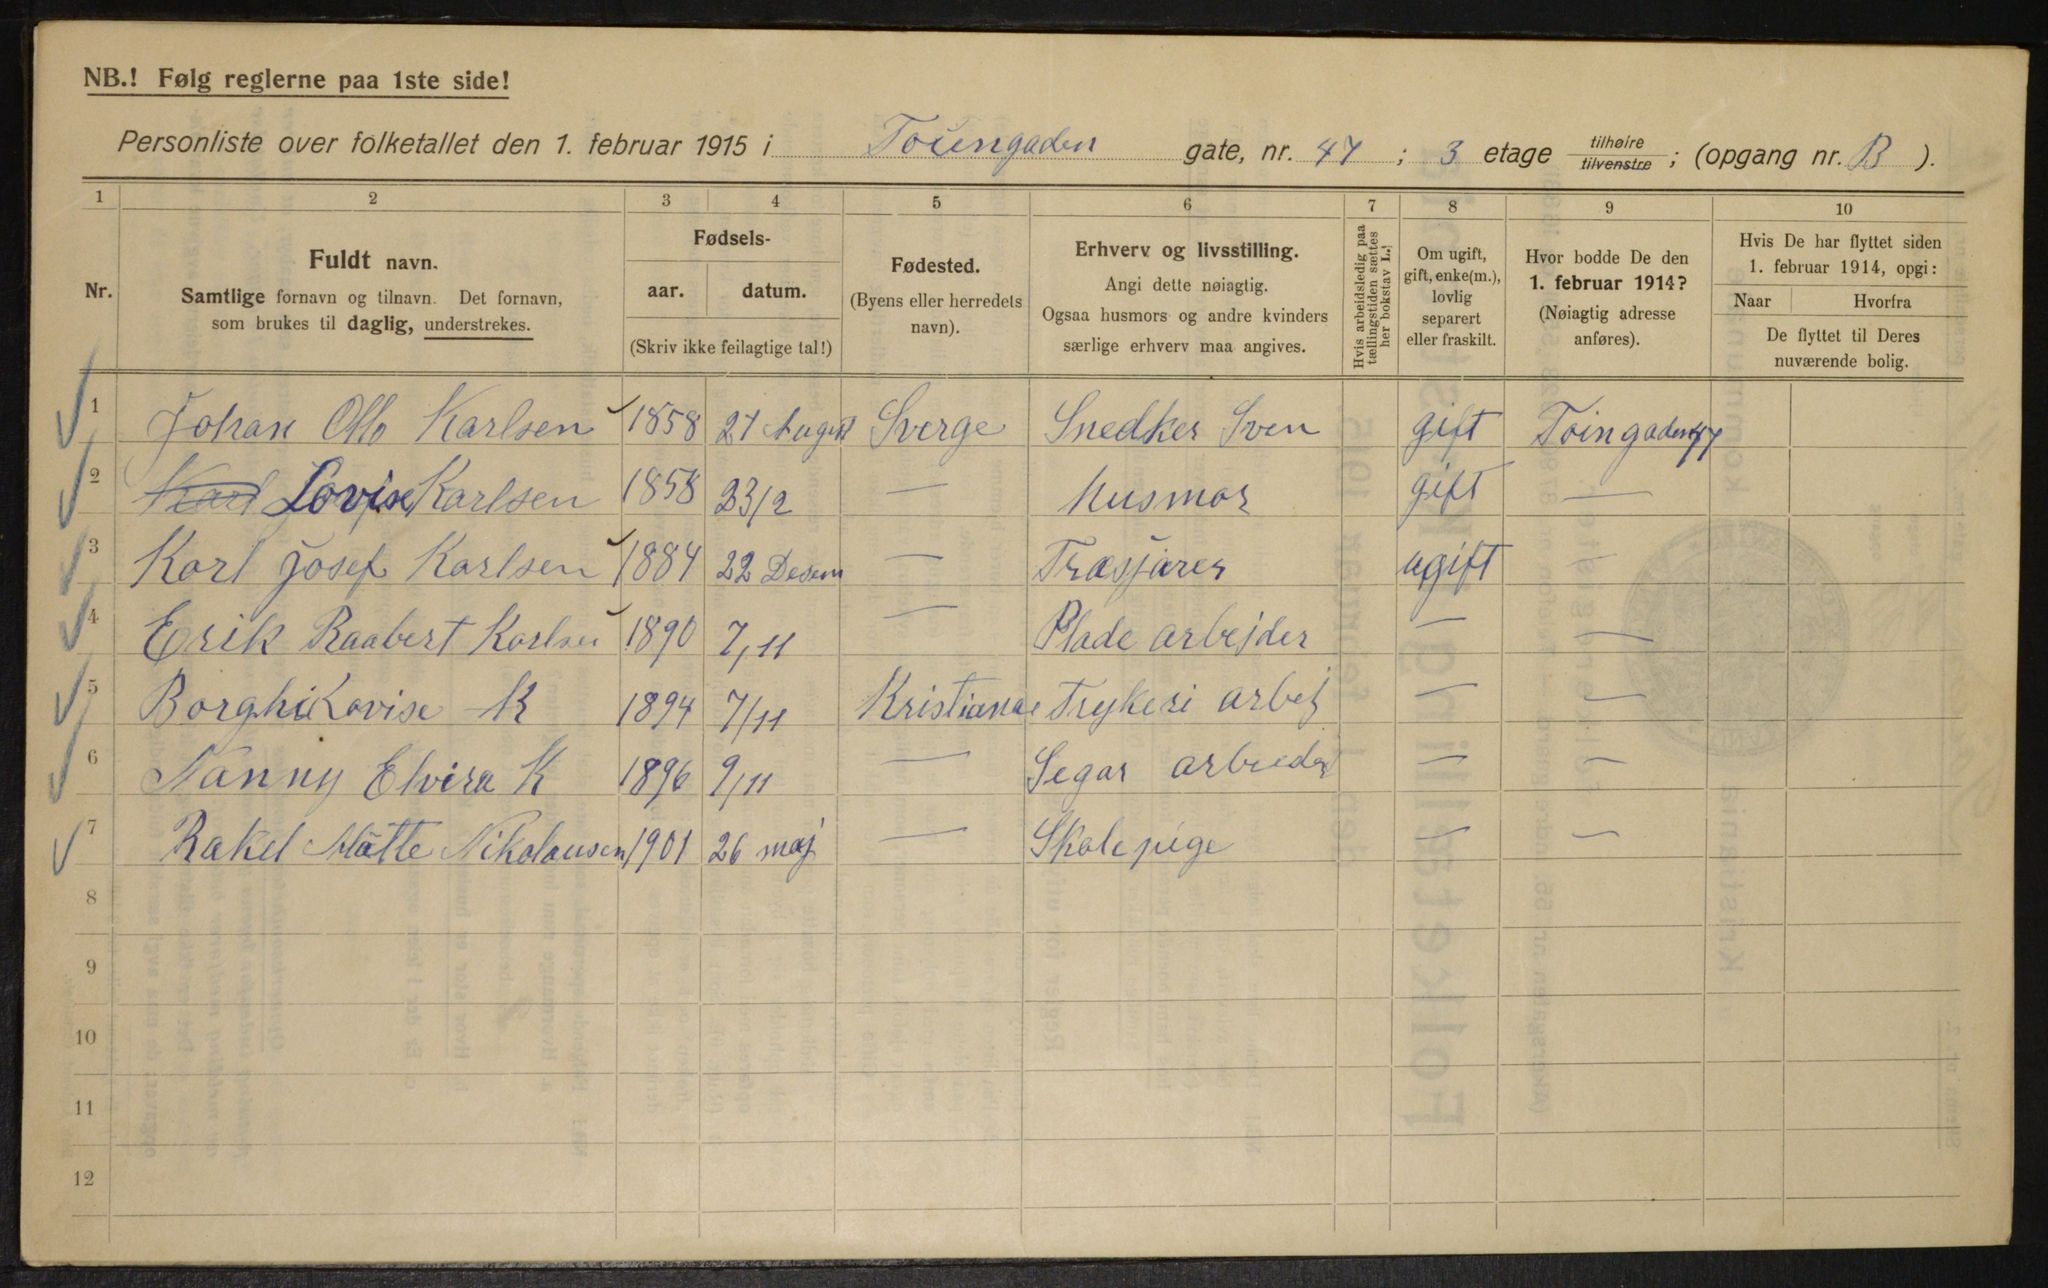 NB.! Følg reglerne paa 1ste side!
Personliste over folketallet den 1. februar 1915 i Toiengaden gate, nr. 47 ; 3 etage tilhøire tilvenstre ; (opgang nr. B ).
1 2 3 4 5 6 7 8 9 10
Nr.
Fuldt navn.
Samtlige fornavn og tilnavn. Det fornavn,
som brukes til daglig, understrekes.
Fødsels-
aar. datum.
(Skriv ikke feilagtige tal!)
Fødested.
(Byens eller herredets
navn).
Erhverv og livsstilling.
Angi dette nøiagtig.
Ogsaa husmors og andre kvinders
særlige erhverv maa angives.
Hvis arbeidsledig paa
tællingstiden sættes
her bokstav L.!
Om ugift,
gift, enke(m.),
lovlig
separert
eller fraskilt.
Hvor bodde De den
1. februar 1914?
(Nøiagtig adresse
anføres).
Hvis De har flyttet siden
1. februar 1914, opgi:
Naar Hvorfra
De flyttet til Deres
nuværende bolig.
1 Johan Otto Karlsen 1858 27 August Sverge Snedker Sven gift Toingaden 47
2 Karl Lovise Karlsen 1858 23/2 — Husmor gift —
3 Karl Josef Karlsen 1884 22 Desem — Træsjærer ugift —
4 Erik Raabert Karlsen 1890 7/11 — Plade arbejder — —
5 Borghi Lovise K 1894 7/11 Kristiania Trykeri arbej — —
6 Nanny Elvira K 1896 9/11 — Segar arbeder — —
7 Rakel Matte Nikolausen 1901 26 maj — Skole pige — —
8
9
10
11
12